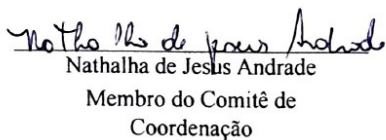 Nathalha de Jesus Andrade
Nathalha de Jesus Andrade
Membro do Comitê de
Coordenação